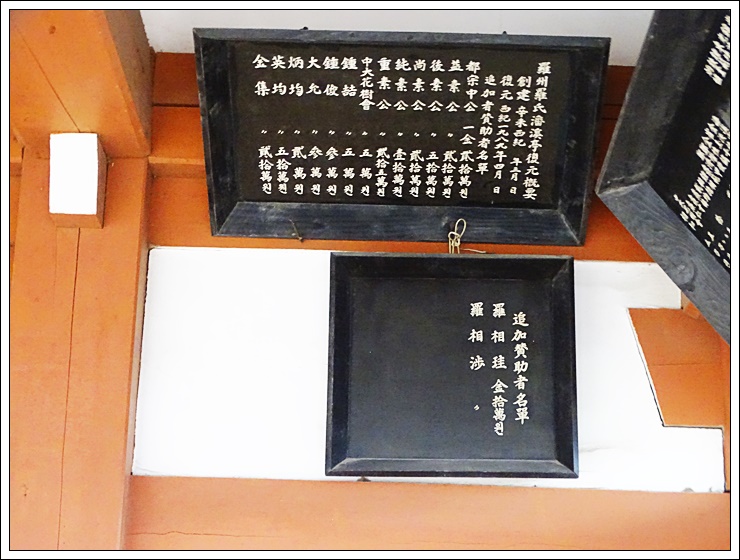 羅州羅氏潘溪亭復元概要
創建 辛未西紀 年五月 日
復元 西紀一九八六年四月 日
追加者贊助者名單
都宗中公 一金貳拾萬원
益素公 〃 貳拾萬원
後素公 〃 五拾萬원
尚素公 〃 貳拾萬원
純素公 〃 壹拾萬원
重素公 〃 貳拾五萬원
中央花樹會
鍾喆 〃 五萬원
鍾俊 〃 參萬원
大允 〃 參萬원
炳均 〃 貳萬원
英均 〃 五拾萬원
金集 〃 貳拾萬원
追加贊助者名單
羅相珪 金拾萬원
羅相涉 〃